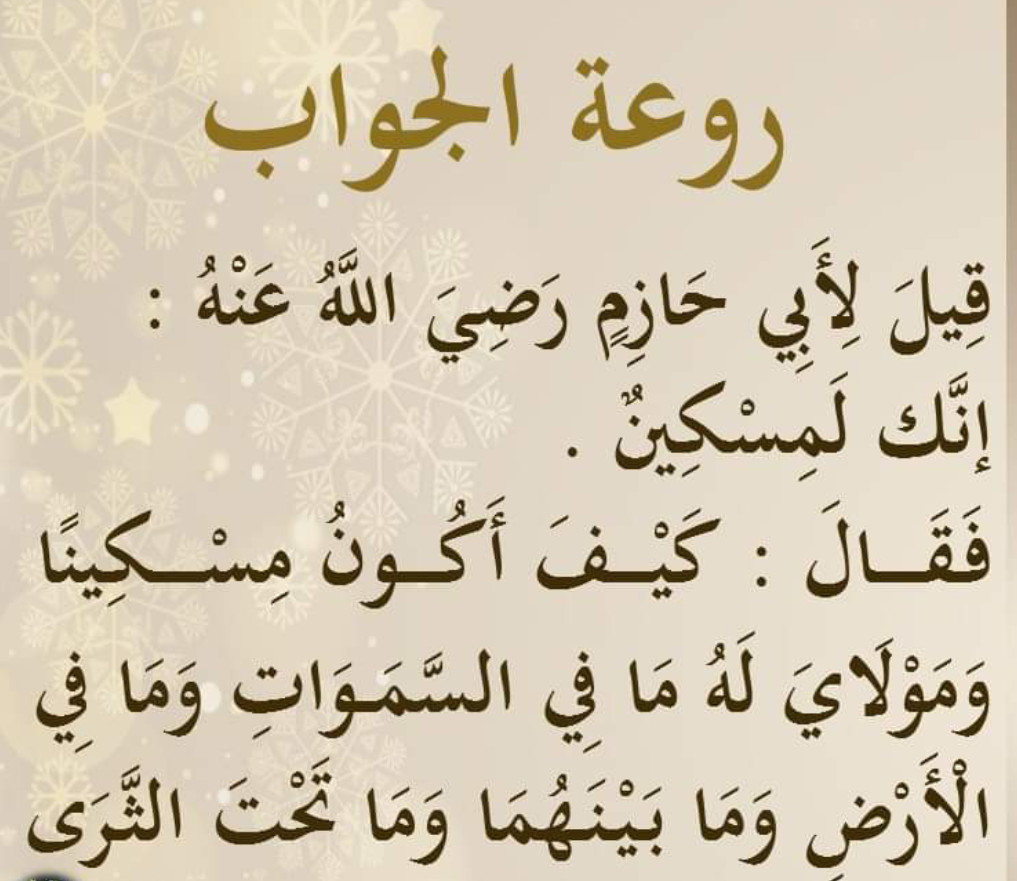 روعة الجواب
قِيلَ لِأَبِي حَازِمٍ رَضِيَ اللَّهُ عَنْهُ :
إنَّك لَمِسْكِينٌ .
فَقَـــالَ : كَيْــفَ أَكُــونُ مِسْــكِينًا
وَمَوْلَايَ لَهُ مَا فِي السَّمَـوَاتِ وَمَا فِي
الْأَرْضِ وَمَا بَيْنَهُمَا وَمَا تَحْتَ الثَّرَى